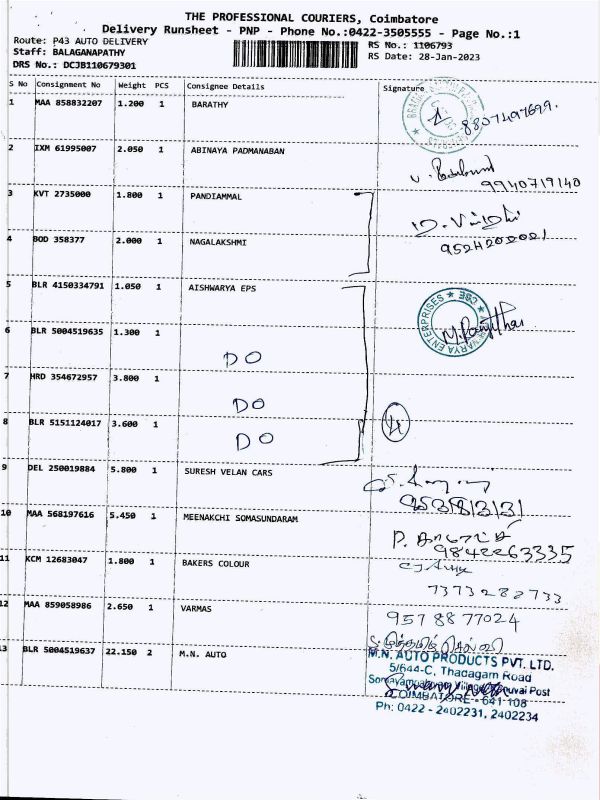 THE PROFESSIONAL COURIERS, Coimbatore
Delivery Runsheet - PNP - Phone No.:0422-3505555 - Page No.:1
Route: P43 AUTO DELIVERY
RS No.: 1106793
Staff: BALAGANAPATHY
RS Date: 28-Jan-2023
DRS No.: DCJB110679301
S No Consignment No Weight PCS Consignee Details Signature
1 MAA 858832207 1.200 1 BARATHY
8807497699.
2 IXM 61995007 2.050 1 ABINAYA PADMANABAN
9940719140
3 KVT 2735000 1.800 1 PANDIAMMAL
4 BOD 358377 2.000 1 NAGALAKSHMI
9524202021
5 BLR 4150334791 1.050 1 AISHWARYA EPS
ENTERPRISES ★ CBE ★
6 BLR 5004519635 1.300 1
DO
7 HRD 354672957 3.800 1
DO
8 BLR 5151124017 3.600 1
DO
4
9 DEL 250019884 5.800 1 SURESH VELAN CARS
10 MAA 568197616 5.450 1 MEENAKCHI SOMASUNDARAM
9842263335
11 KCM 12683047 1.800 1 BAKERS COLOUR
7373282733
12 MAA 859058986 2.650 1 VARMAS
9578877024
13 BLR 5004519637 22.150 2 M.N. AUTO
M.N. AUTO PRODUCTS PVT. LTD.
5/644-C, Thadagam Road
COIMBATORE - 641 108
Ph: 0422 - 2402231, 2402234